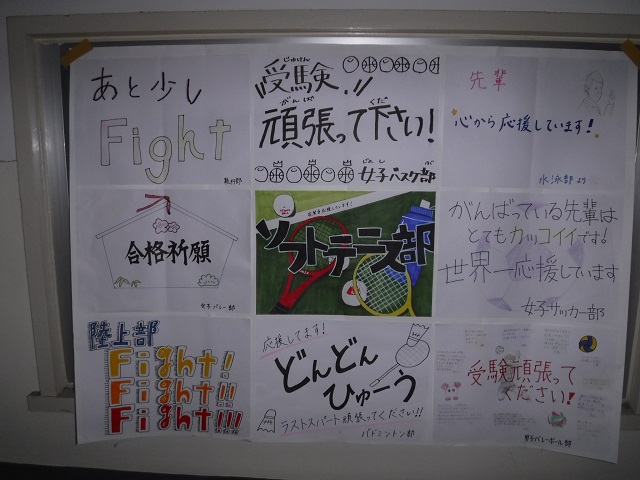 あと少し
Fight
じゅけん
受験
がんば くだ
頑張って下さい!
じょし ぶ
女子バスケ部
先輩
心から応援しています!
水泳部より
合格祈願
女子バレー部
ソフトテニス部
がんばっている先輩は
とてもカッコイイです!
世界一応援しています
女子サッカー部
陸上部
Fight!
Fight!!
Fight!!!
応援してます!
どんどん
ひゅーう
ラストスパート頑張ってください!!
バドミントン部
受験頑張って
ください!
男子バレーボール部